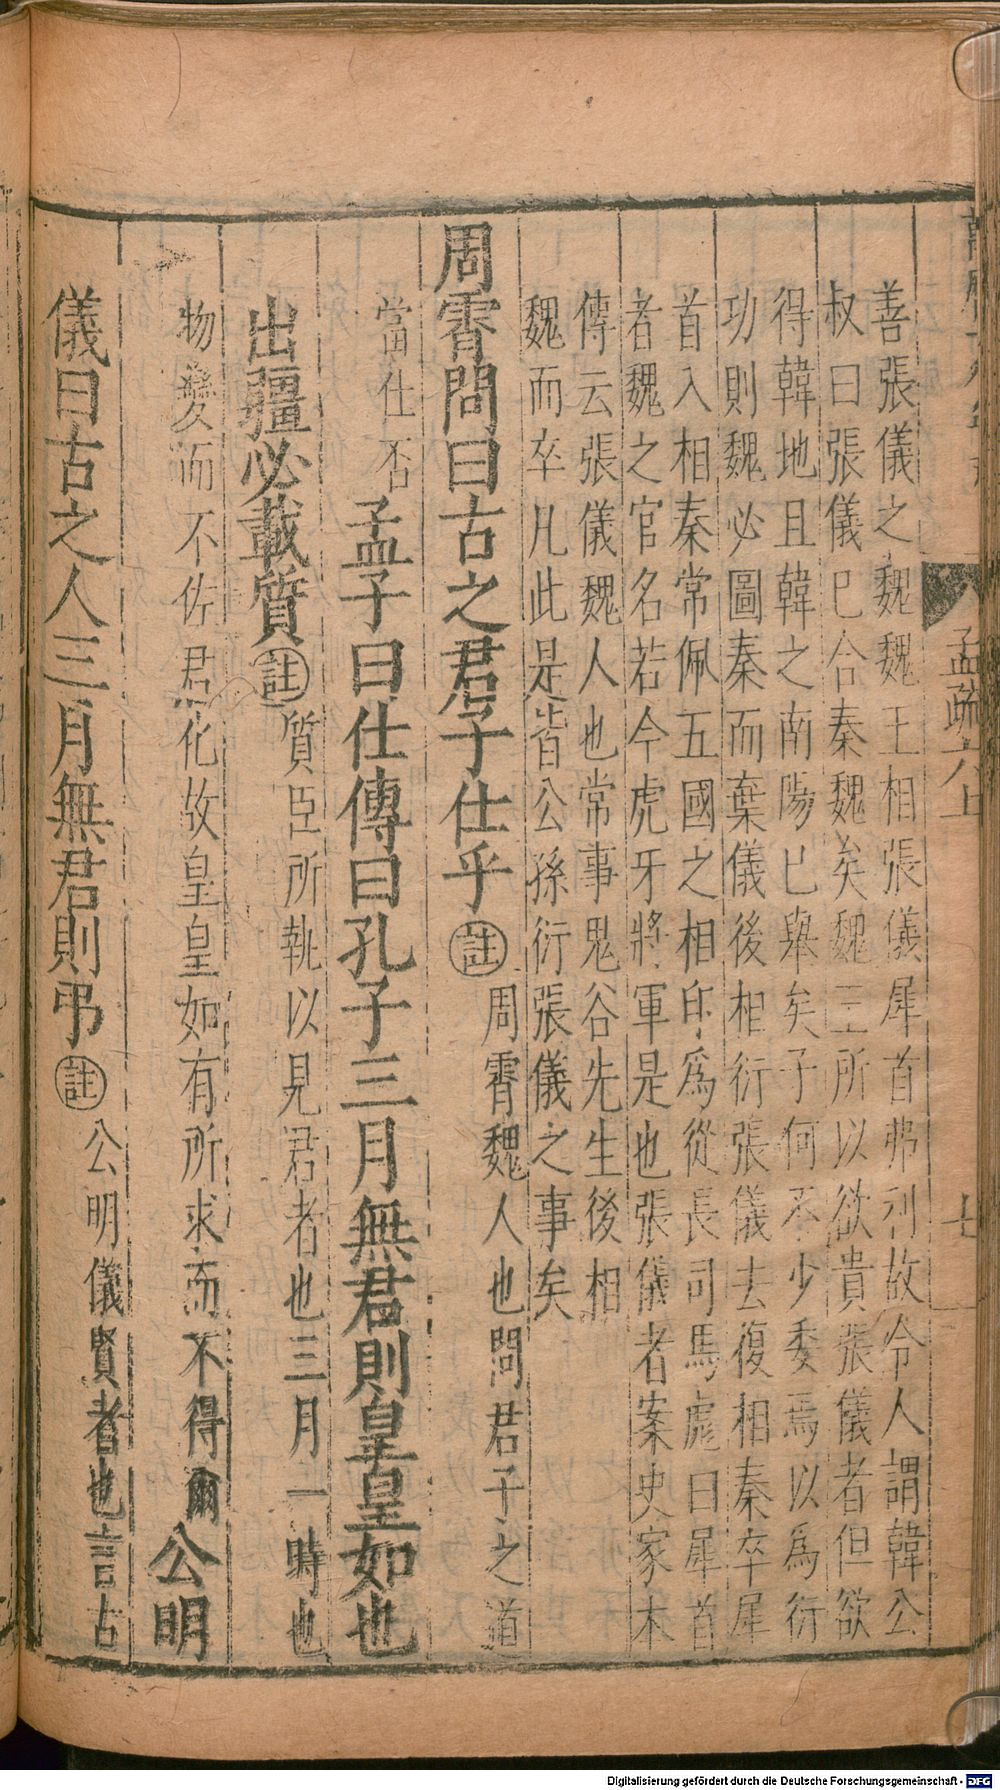 孟疏六上
七
善張儀之魏魏王相張儀犀首弗利故令人謂韓公
叔曰張儀已合秦魏矣魏王所以欲貴張儀者但欲
得韓地且韓之南陽已舉矣子何不少委焉以為衍
功則魏必圖秦而棄儀後相衍張儀去復相秦卒犀
首入相秦常佩五國之相印為從長司馬彪曰犀首
者魏之官名若今虎牙將軍是也張儀者案史家本
傳云張儀魏人也常事鬼谷先生後相
魏而卒凡此是皆公孫衍張儀之事矣
周霄問曰古之君子仕乎註周霄魏人也問君子之道
當仕否孟子曰仕傳曰孔子三月無君則皇皇如也
出疆必載質註質臣所執以見君者也三月一時也
物變而不佐君化故皇皇如有所求而不得爾公明
儀曰古之人三月無君則弔註公明儀賢者也言古
Digitalisierung gefördert durch die Deutsche Forschungsgemeinschaft - DFG